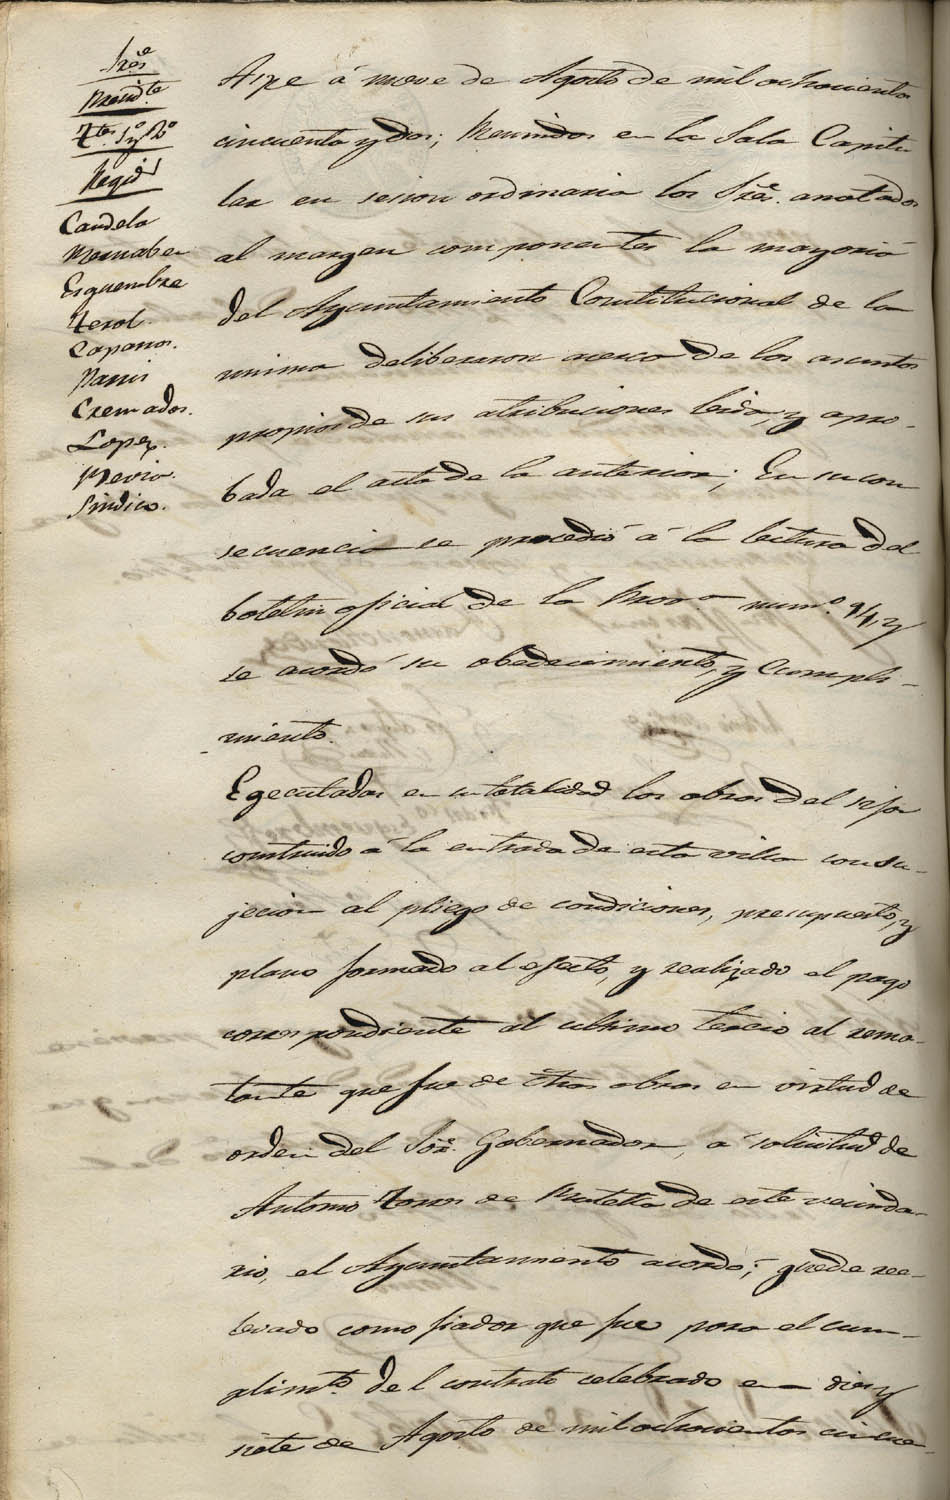 Sres
Presidte
Tte 1º y 2º
Regid
Candela
Mernaber
Esquembre
Terol.
Caparros.
Manis
Cremades.
Lopez.
Sindico.
Aspe á nueve de Agosto de mil ochocientos
cincuenta y dos; Reunidos en la Sala Capitu
lar en sesion ordinaria los Sres. anotados
al margen componentes la mayoria
del Ayuntamiento Constitucional de la
misma deliberaron acerca de los asuntos
propios de sus atribuciones leida, y apro-
bada el acta de la anterior; En su con
secuencia se procedió á la lectura del
boletin oficial de la Prova numo 94, y
se acordó su obedecimiento, y cumpli-
miento.
Egecutadas en su totalidad las obras del
construido á la entrada de esta villa con su-
jecion al pliego de condiciones, presupuesto, y
plano formado al efecto, y realizado el pago
correspondiente al ultimo tercio al rema-
tante que fue de dhas obras en virtud de
orden del Sor. Gobernador, á solicitud de
Antonio Torres de de este vecinda-
rio, el Ayuntamiento acordó; quede rele-
levado como fiador que fue para el cum-
plimto. del contrato celebrado en diez y
siete de Agosto de mil ochocientos cincuen-